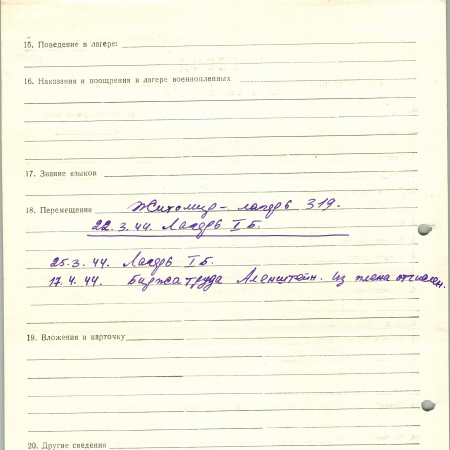 15. Поведение в лагере:
16. Наказания и поощрения в лагере военнопленных
17. Знание языков
18. Перемещения Житомир - лагерь 319.
22.3.44. Лагерь I Б.
25.3.44. Лагерь I Б.
17.4.44. Биржа труда Аленштейн. Из плена отчислен.
19. Вложения в карточку
20. Другие сведения